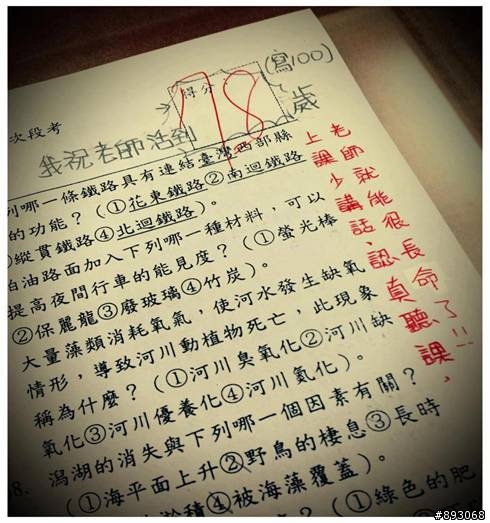 (寫100)
得分
18
次段考
我祝老師活到
歲
老師就能很長命了!!
上課少講話,認真聽課,
列哪一條鐵路具有連結臺灣西部縣
的功能?(①花東鐵路②南迴鐵路
縱貫鐵路④北迴鐵路)。
柏油路面加入下列哪一種材料,可以
提高夜間行車的能見度?(①螢光棒
②保麗龍③廢玻璃④竹炭)。
大量藻類消耗氧氣,使河水發生缺氧
情形,導致河川動植物死亡,此現象
稱為什麼?(①河川臭氧化②河川缺
氧化③河川優養化④河川氮化)。
8. 潟湖的消失與下列哪一個因素有關?
(①海平面上升②野鳥的棲息③長時
淤積④被海藻覆蓋)。
(①綠色的肥
#893068